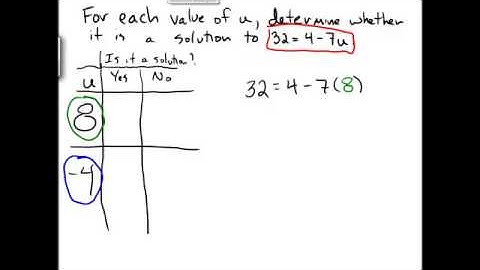 For each value of u, determine whether
it is a solution to 32 = 4 - 7u
Is it a solution?
u Yes No
32 = 4 - 7(8)
8
-4